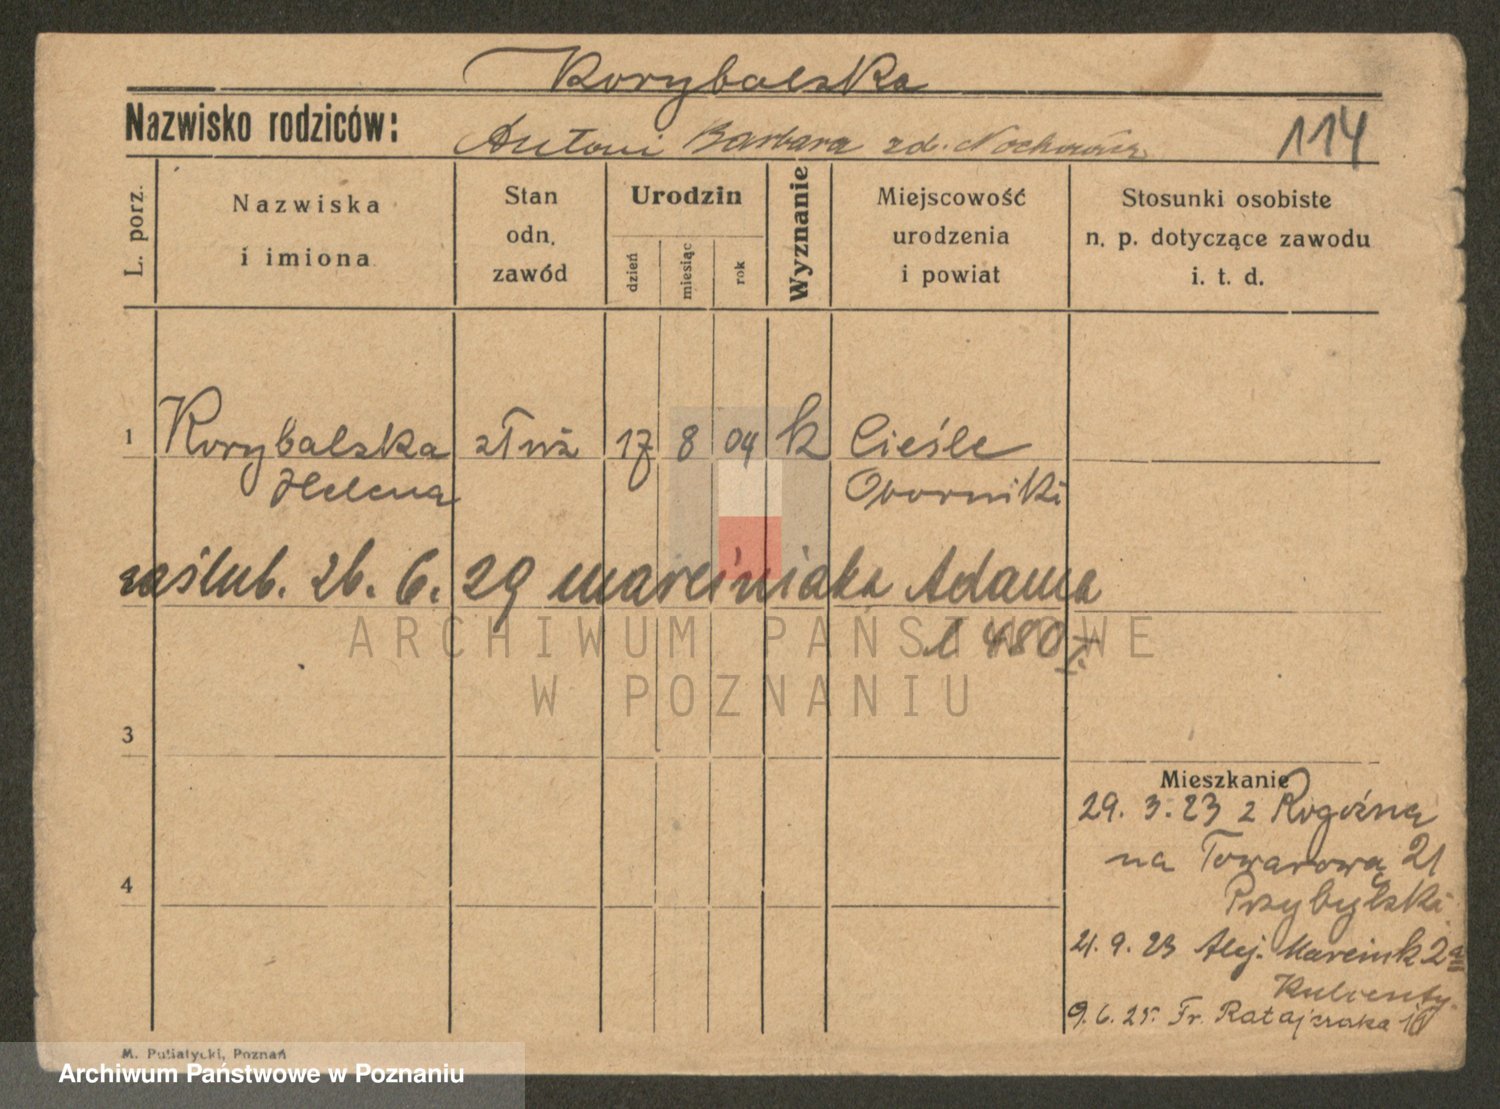 Korybalska
Nazwisko rodziców: Antoni Barbara zd. 114
L. porz.
Nazwiska
i imiona
Stan
odn.
zawód
Urodzin
dzień
miesiąc
rok
Wyznanie
Miejscowość
urodzenia
i powiat
Stosunki osobiste
n. p. dotyczące zawodu
i. t. d.
1 Korybalska służ 17 8 04 k Cieśle
Helena Oborniki
zaślub. 26. 6. 29 Marciniaka Adama
l 480
ARCHIWUM PAŃSTWOWE
W POZNANIU
3
Mieszkanie
29. 3. 23 z Rogoźna
na Towarową 21
Przybylski
4
21. 9. 23 Alej. Marcink 2a
9. 6. 25. Fr. Ratajczaka 10
M. Putiatycki, Poznań
Archiwum Państwowe w Poznaniu